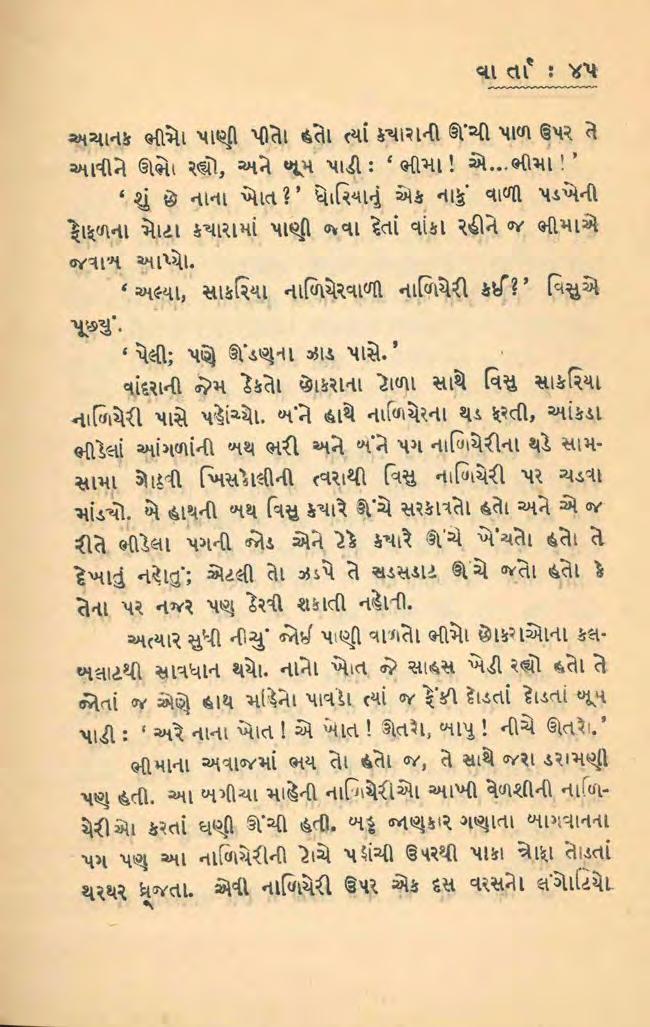 વાર્તા : ૪૫
અચાનક ભીમો પાણી પીતો હતો ત્યાં ક્યારાની ઊંચી પાળ ઉપર તે
આવીને ઊભો રહ્યો, અને બૂમ પાડી : ‘ ભીમા ! એ...ભીમા ! ’
‘ શું છે નાના ખોત ? ’ ધોરિયાનું એક નાકું વાળી પડખેની
ફોફળના મોટા ક્યારામાં પાણી જવા દેતાં વાંકા રહીને જ ભીમાએ
જવાબ આપ્યો.
‘ અલ્યા, સાકરિયા નાળિયેરવાળી નાળિયેરી કઈ ? ’ વિસુએ
પૂછ્યું.
‘ પેલી; પણે ઊંડણના ઝાડ પાસે. ’
વાંદરાની જેમ ઠેકતો છોકરાના ટોળા સાથે વિસુ સાકરિયા
નાળિયેરી પાસે પહોંચ્યો. બંને હાથે નાળિયેરના થડ ફરતી, આંકડા
ભીડેલાં આંગળાંની બથ ભરી અને બંને પગ નાળિયેરીના થડે સામ-
સામા ગોઠવી ખિસકોલીની ત્વરાથી વિસુ નાળિયેરી પર ચડવા
માંડ્યો. બે હાથની બથ વિસુ ક્યારે ઊંચે સરકાવતો હતો અને એ જ
રીતે ભીડેલા પગની જોડ એને ટેકે ક્યારે ઊંચે ખેંચતો હતો તે
દેખાતું નહોતું; એટલી તો ઝડપે તે સડસડાટ ઊંચે જતો હતો કે
તેના પર નજર પણ ઠેરવી શકાતી નહોતી.
અત્યાર સુધી નીચું જોઈ પાણી વાળતો ભીમો છોકરાઓના કલ-
બલાટથી સાવધાન થયો. નાનો ખોત જે સાહસ ખેડી રહ્યો હતો તે
જોતાં જ એણે હાથ માંહેનો પાવડો ત્યાં જ ફેંકી દોડતાં દોડતાં બૂમ
પાડી : ‘ અરે નાના ખોત ! એ ખોત ! ઊતરો, બાપુ ! નીચે ઊતરો. ’
ભીમાના અવાજમાં ભય તો હતો જ, તે સાથે જરા ડરામણી
પણ હતી. આ બગીચા માહેની નાળિયેરીઓ આખી વેળશીની નાળિ-
યેરીઓ કરતાં ઘણી ઊંચી હતી. બહુ જાણકાર ગણાતા બાગવાનના
પગ પણ આ નાળિયેરીની ટોચે પહોંચી ઉપરથી પાકા ત્રોફા તોડતાં
થરથર ધ્રૂજતા. એવી નાળિયેરી ઉપર એક દસ વરસનો લંગોટિયો